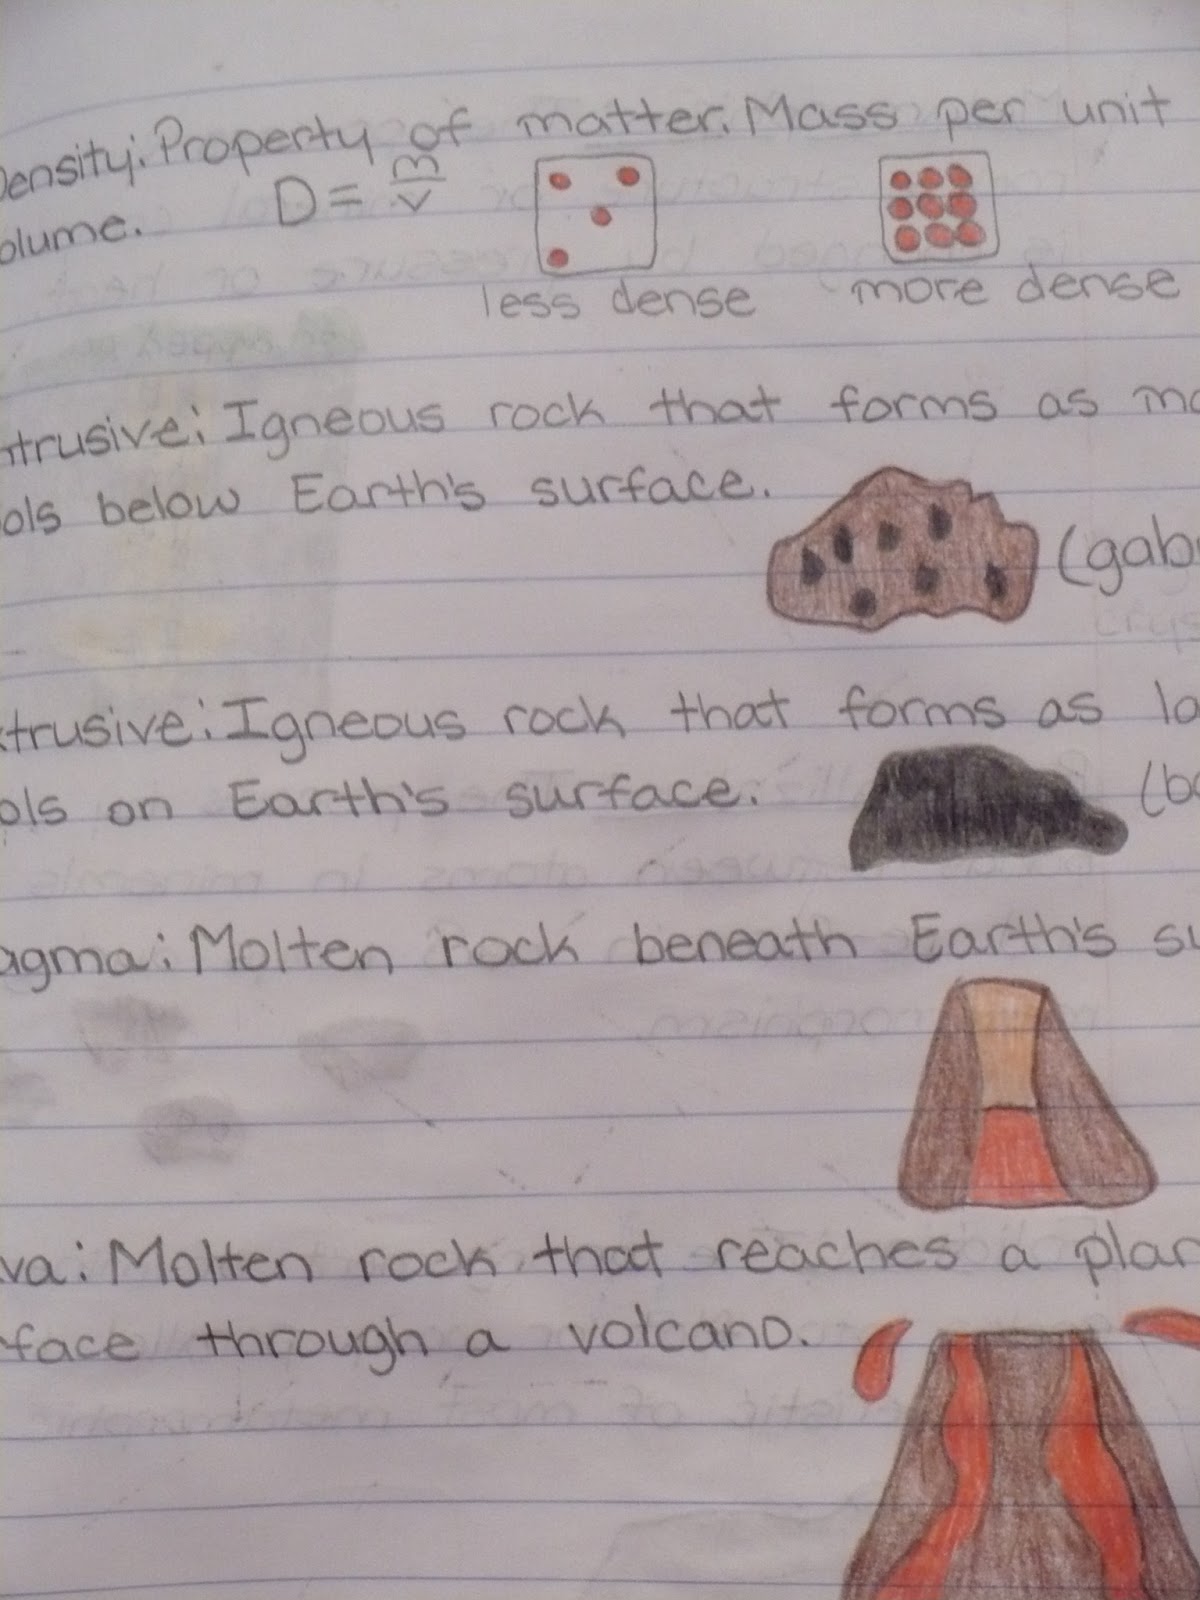 Density: Property of matter. Mass per unit
olume.
D = m/v
less dense
more dense
ntrusive: Igneous rock that forms as ma
ols below Earth's surface.
(gab
xtrusive: Igneous rock that forms as la
ols on Earth's surface.
(ba
agma: Molten rock beneath Earth's su
va: Molten rock that reaches a plan
face through a volcano.